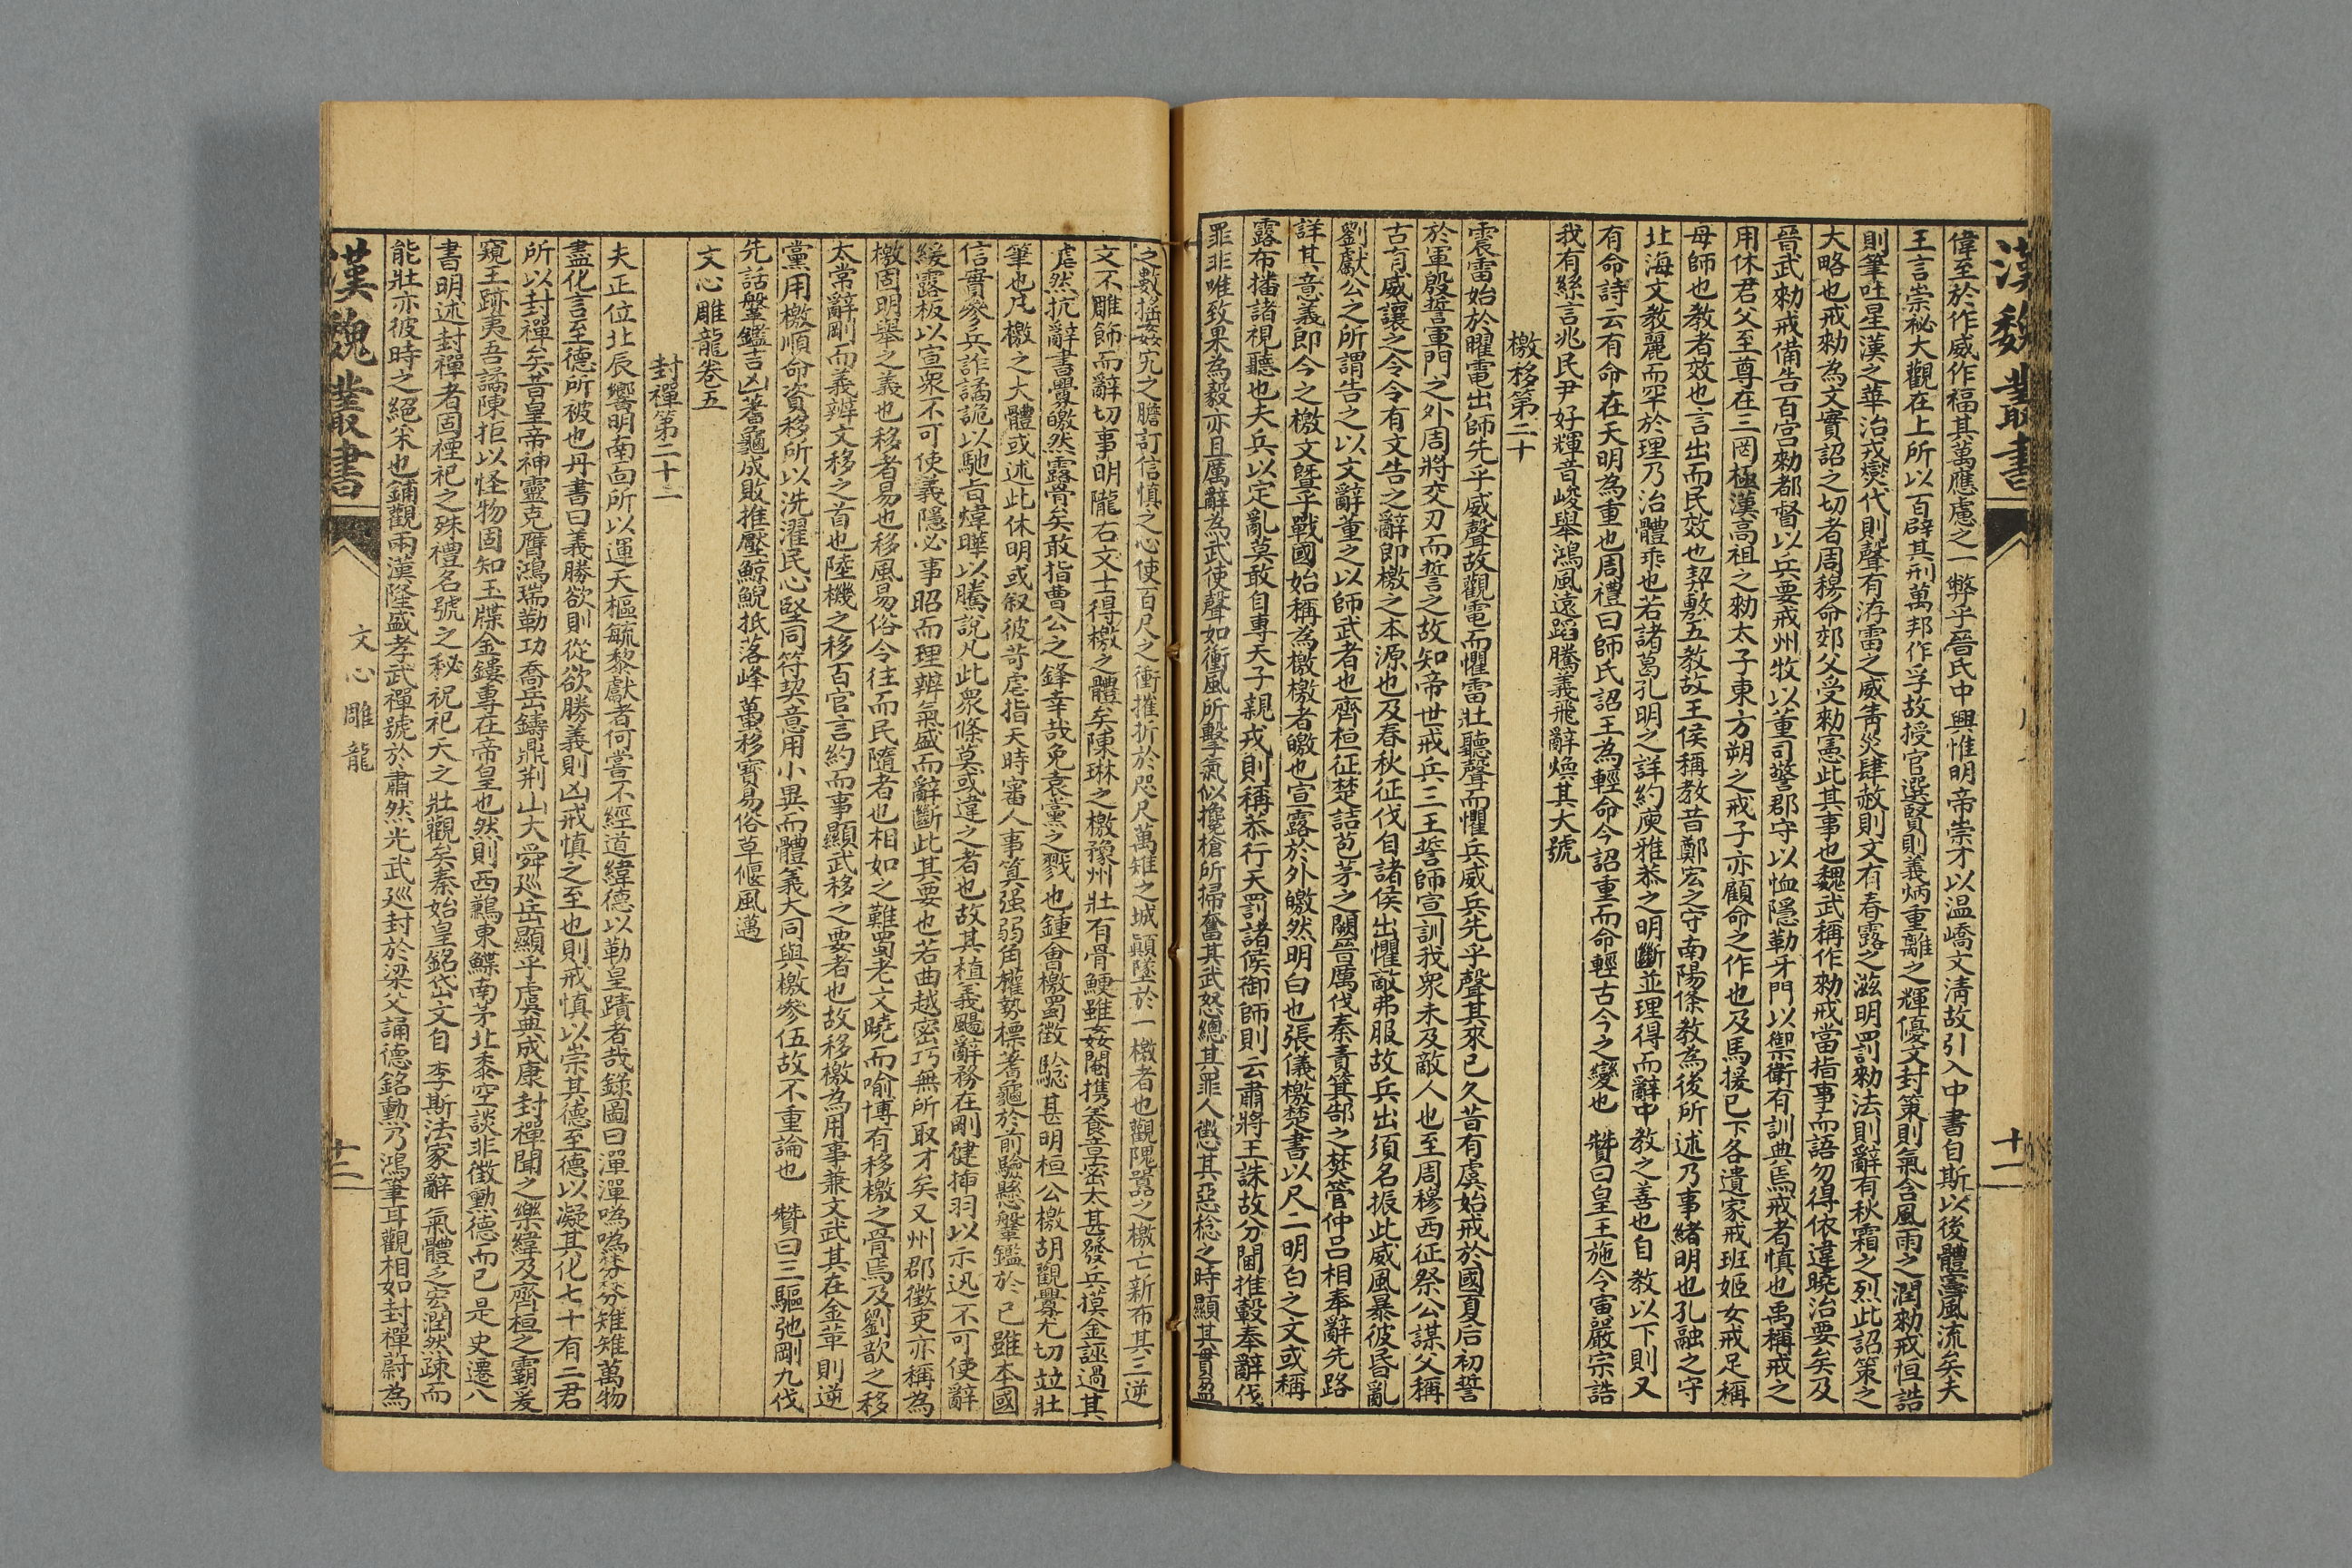 漢魏叢書
十二
偉至於作威作福其萬應慮之一弊乎晉氏中興惟明帝崇才以温嶠文清故引入中書自斯以後體憲風流矣夫
王言崇祕大觀在上所以百辟其刑萬邦作孚故授官選賢則義炳重離之輝優文封策則氣含風雨之潤勑戒恒誥
則筆吐星漢之華治戎燮伐則聲有洊雷之威眚災肆赦則文有春露之滋明罰勑法則辭有秋霜之烈此詔策之
大略也戒勑為文實詔之切者周穆命郊父受勑憲此其事也魏武稱作勑戒當指事而語勿得依違曉治要矣及
晉武勑戒備告百官勑都督以兵要戒州牧以董司警郡守以恤隱勒牙門以禦衛有訓典焉戒者慎也禹稱戒之
用休君父至尊在三罔極漢高祖之勑太子東方朔之戒子亦顧命之作也及馬援已下各遺家戒班姬女戒足稱
母師也教者效也言出而民效也契敷五教故王侯稱教昔鄭宏之守南陽條教為後所述乃事緒明也孔融之守
北海文教麗而罕於理乃治體乖也若諸葛孔明之詳約庾雅恭之明斷並理得而辭中教之善也自教以下則又
有命詩云有命在天明為重也周禮曰師氏詔王為輕命今詔重而命輕古今之變也　贊曰皇王施令寅嚴宗誥
我有絲言兆民尹好輝音峻舉鴻風遠蹈騰義飛辭煥其大號
檄移第二十
震雷始於曜電出師先乎威聲故觀電而懼雷壯聽聲而懼兵威兵先乎聲其來已久昔有虞始戒於國夏后初誓
於軍殷誓軍門之外周將交刃而誓之故知帝世戒兵三王誓師宣訓我眾未及敵人也至周穆西征祭公謀父稱
古有威讓之令令有文告之辭即檄之本源也及春秋征伐自諸侯出懼敵弗服故兵出須名振此威風暴彼昏亂
劉獻公之所謂告之以文辭董之以師武者也齊桓征楚詰苞茅之闕晉厲伐秦責箕郜之焚管仲呂相奉辭先路
詳其意義即今之檄文曁乎戰國始稱為檄檄者皦也宣露於外皦然明白也張儀檄楚書以尺二明白之文或稱
露布播諸視聽也夫兵以定亂莫敢自專天子親戎則稱恭行天罰諸侯御師則云肅將王誅故分閫推轂奉辭伐
罪非唯致果為毅亦且厲辭為武使聲如衝風所擊氣似攙槍所掃奮其武怒總其罪人徵其惡稔之時顯其貫盈
之數搖姦宄之膽訂信慎之心使百尺之衝摧折於咫尺萬雉之城顛墜於一檄者也觀隗囂之檄亡新布其三逆
文不雕飾而辭切事明隴右文士得檄之體矣陳琳之檄豫州壯有骨鯁雖姦閹攜養章密太甚發兵摸金誣過其
虐然抗辭書釁皦然露骨矣敢指曹公之鋒幸哉免袁黨之戮也鍾會檄蜀徵驗甚明桓公檄胡觀釁尤切竝壯
筆也凡檄之大體或述此休明或叙彼苛虐指天時審人事算强弱角權勢標蓍龜於前驗懸鞶鑑於已雖本國
信實參兵詐譎詭以馳旨煒曄以騰說凡此眾條莫或違之者也故其植義颺辭務在剛健挿羽以示迅不可使辭
緩露板以宣眾不可使義隱必事昭而理辨氣盛而辭斷此其要也若曲越密巧無所取才矣又州郡徵吏亦稱為
檄固明舉之義也移者易也移風易俗令往而民隨者也相如之難蜀老文曉而喻博有移檄之骨焉及劉歆之移
太常辭剛而義辨文移之首也陸機之移百官言約而事顯武移之要者也故移檄為用事兼文武其在金革則逆
黨用檄順命資移所以洗濯民心堅同符契意用小異而體義大同與檄參伍故不重論也　贊曰三驅弛剛九伐
先話鞶鑑吉凶蓍龜成敗推壓鯨鯢抵落蜂蠆移寳易俗草偃風邁
文心雕龍卷五
封禪第二十一
夫正位北辰嚮明南面所以運天樞毓黎獻者何嘗不經道緯德以勒皇蹟者哉錄圖曰潬潬噅噅棼棼雉雉萬物
盡化言至德所被也丹書曰義勝欲則從欲勝義則凶戒慎之至也則戒慎以崇其德至德以凝其化七十有二君
所以封禪矣昔皇帝神靈克膺鴻瑞勒功喬岳鑄鼎荆山大舜巡岳顯乎虞典成康封禪聞之樂緯及齊桓之霸爰
窺王跡夷吾譎陳拒以怪物固知玉牒金鏤專在帝皇也然則西鶼東鰈南茅北黍空談非徵勳德而已是史遷八
書明述封禪者固禋祀之殊禮名號之秘祝祀天之壯觀矣秦始皇銘岱文自李斯法家辭氣體乏宏潤然疎而
能壯亦彼時之絕采也鋪觀兩漢隆盛孝武禪號於肅然光武巡封於梁父誦德銘勳乃鴻筆耳觀相如封禪蔚為
漢魏叢書
文心雕龍
十二